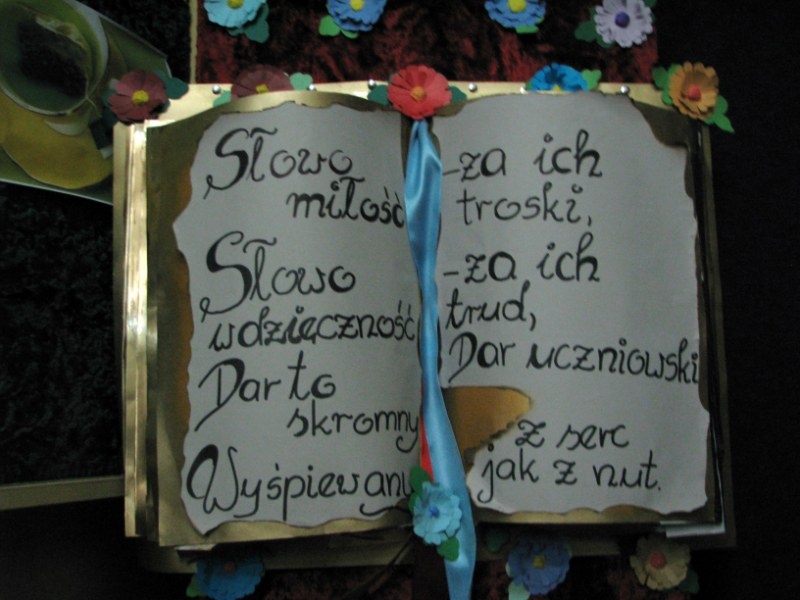 Słowo
miłość
Słowo
wdzięczność
Dar to
skromny
Wyśpiewany
-za ich
troski,
-za ich
trud,
Dar uczniowski
z serc
jak z nut.